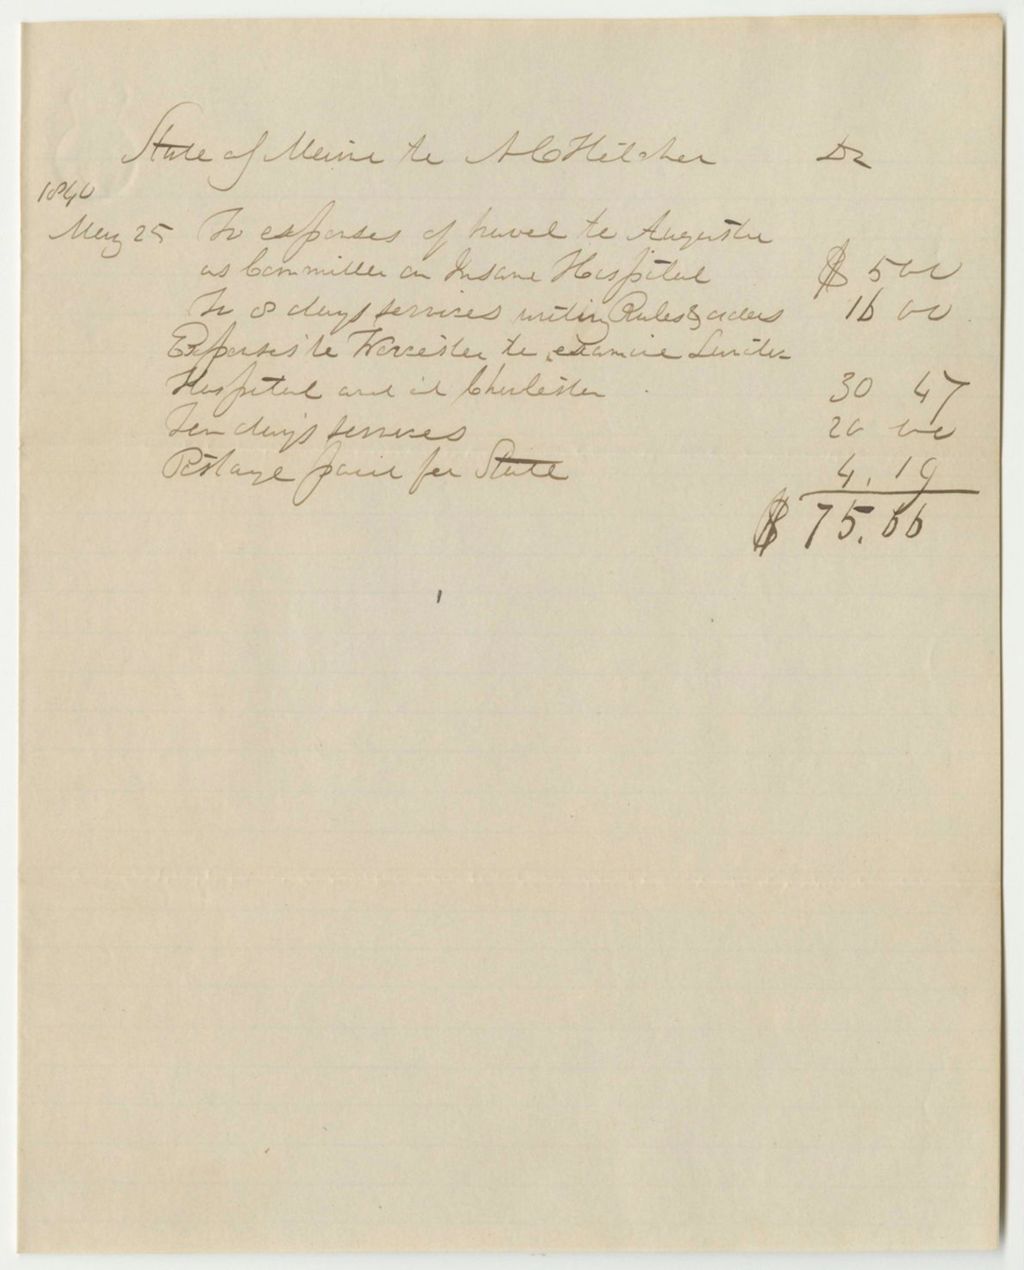 State of Maine to Dr
1840
May 25 To expenses of travel to Augusta
as Committee on Insane Hospital $ 5 00
To 8 days services writing Rules & orders 16 00
Expenses to Worcester to examine Lunatic
Hospital and at Charleston 30 47
Ten days services 20 00
Postage paid for State 4.19
$ 75.66